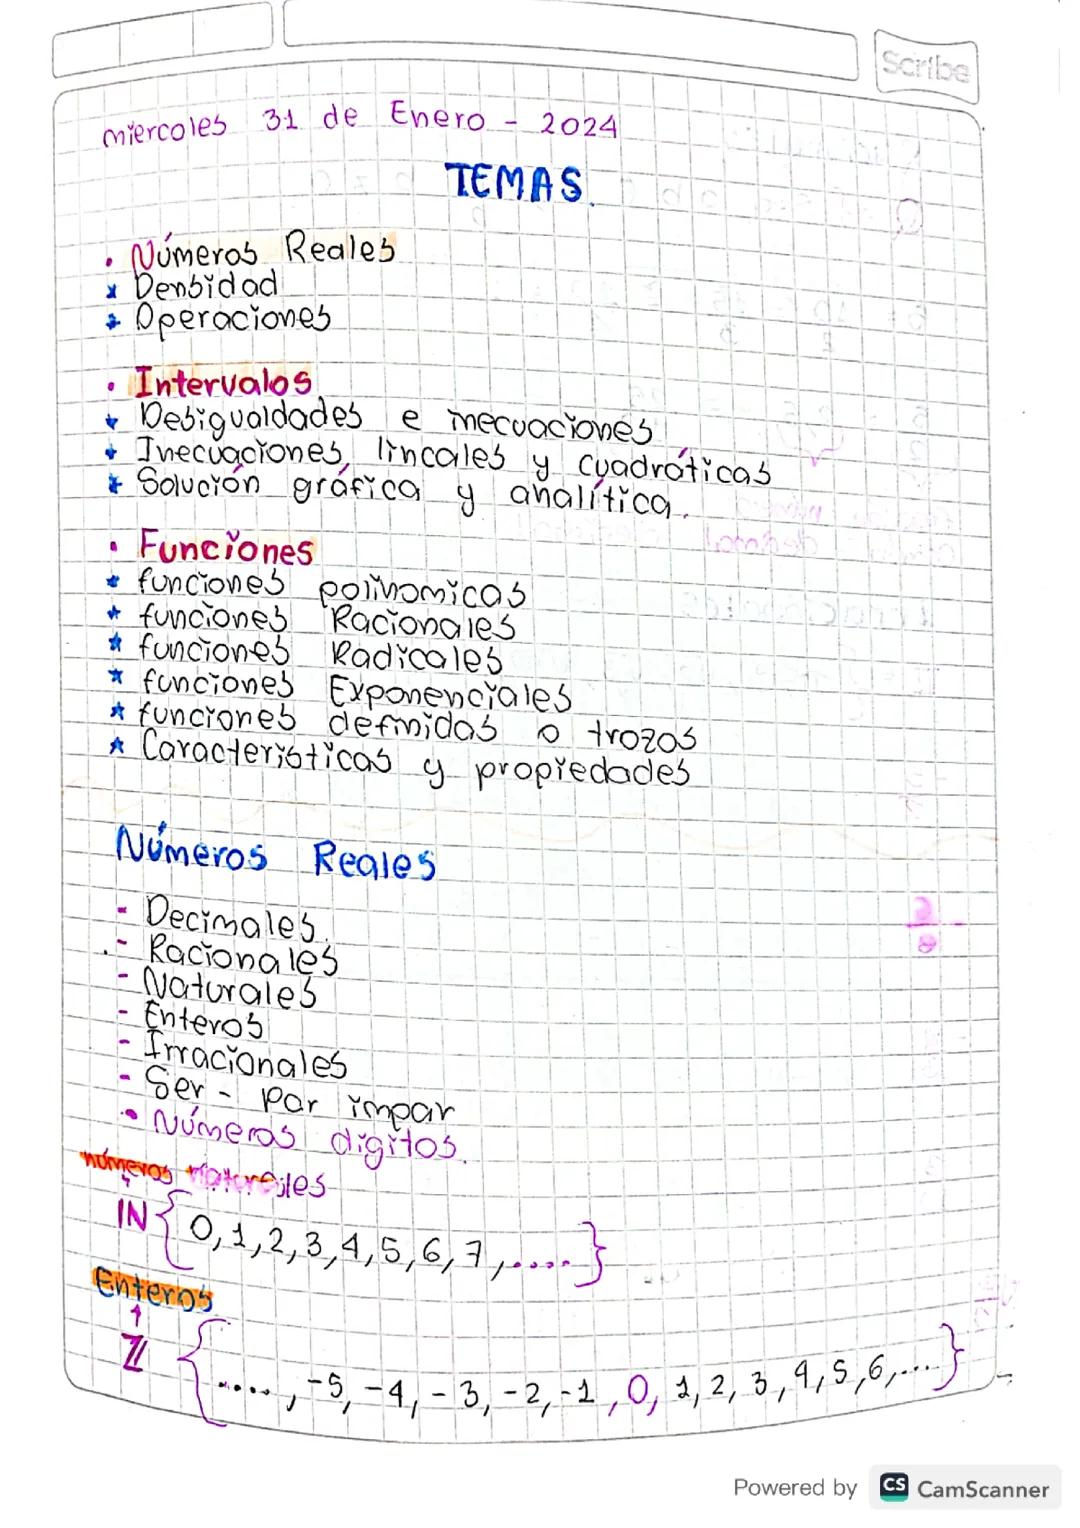 Scribe
miercoles 31 de Enero - 2024
TEMAS.
• Números Reales
* Densidad
* Operaciones
• Intervalos
* Desigualdades e inecuaciones
* Inecuaciones, lineales y cuadráticas
* Solución gráfica y analítica.
• Funciones
* funciones polinomicas
* funciones Racionales
* funciones Radicales
* funciones Exponenciales
* funciones definidas a trozos
* Caracteristicas y propiedades
Números Reales
- Decimales.
- Racionales
- Naturales
- Enteros
- Irracionales
- Ser - Par impar
• Números digitos.
números Naturales
IN { 0, 1, 2, 3, 4, 5, 6, 7, .... }
Enteros
Z { ...., -5, -4, -3, -2, -1, 0, 1, 2, 3, 4, 5, 6, .... }
Powered by CS CamScanner